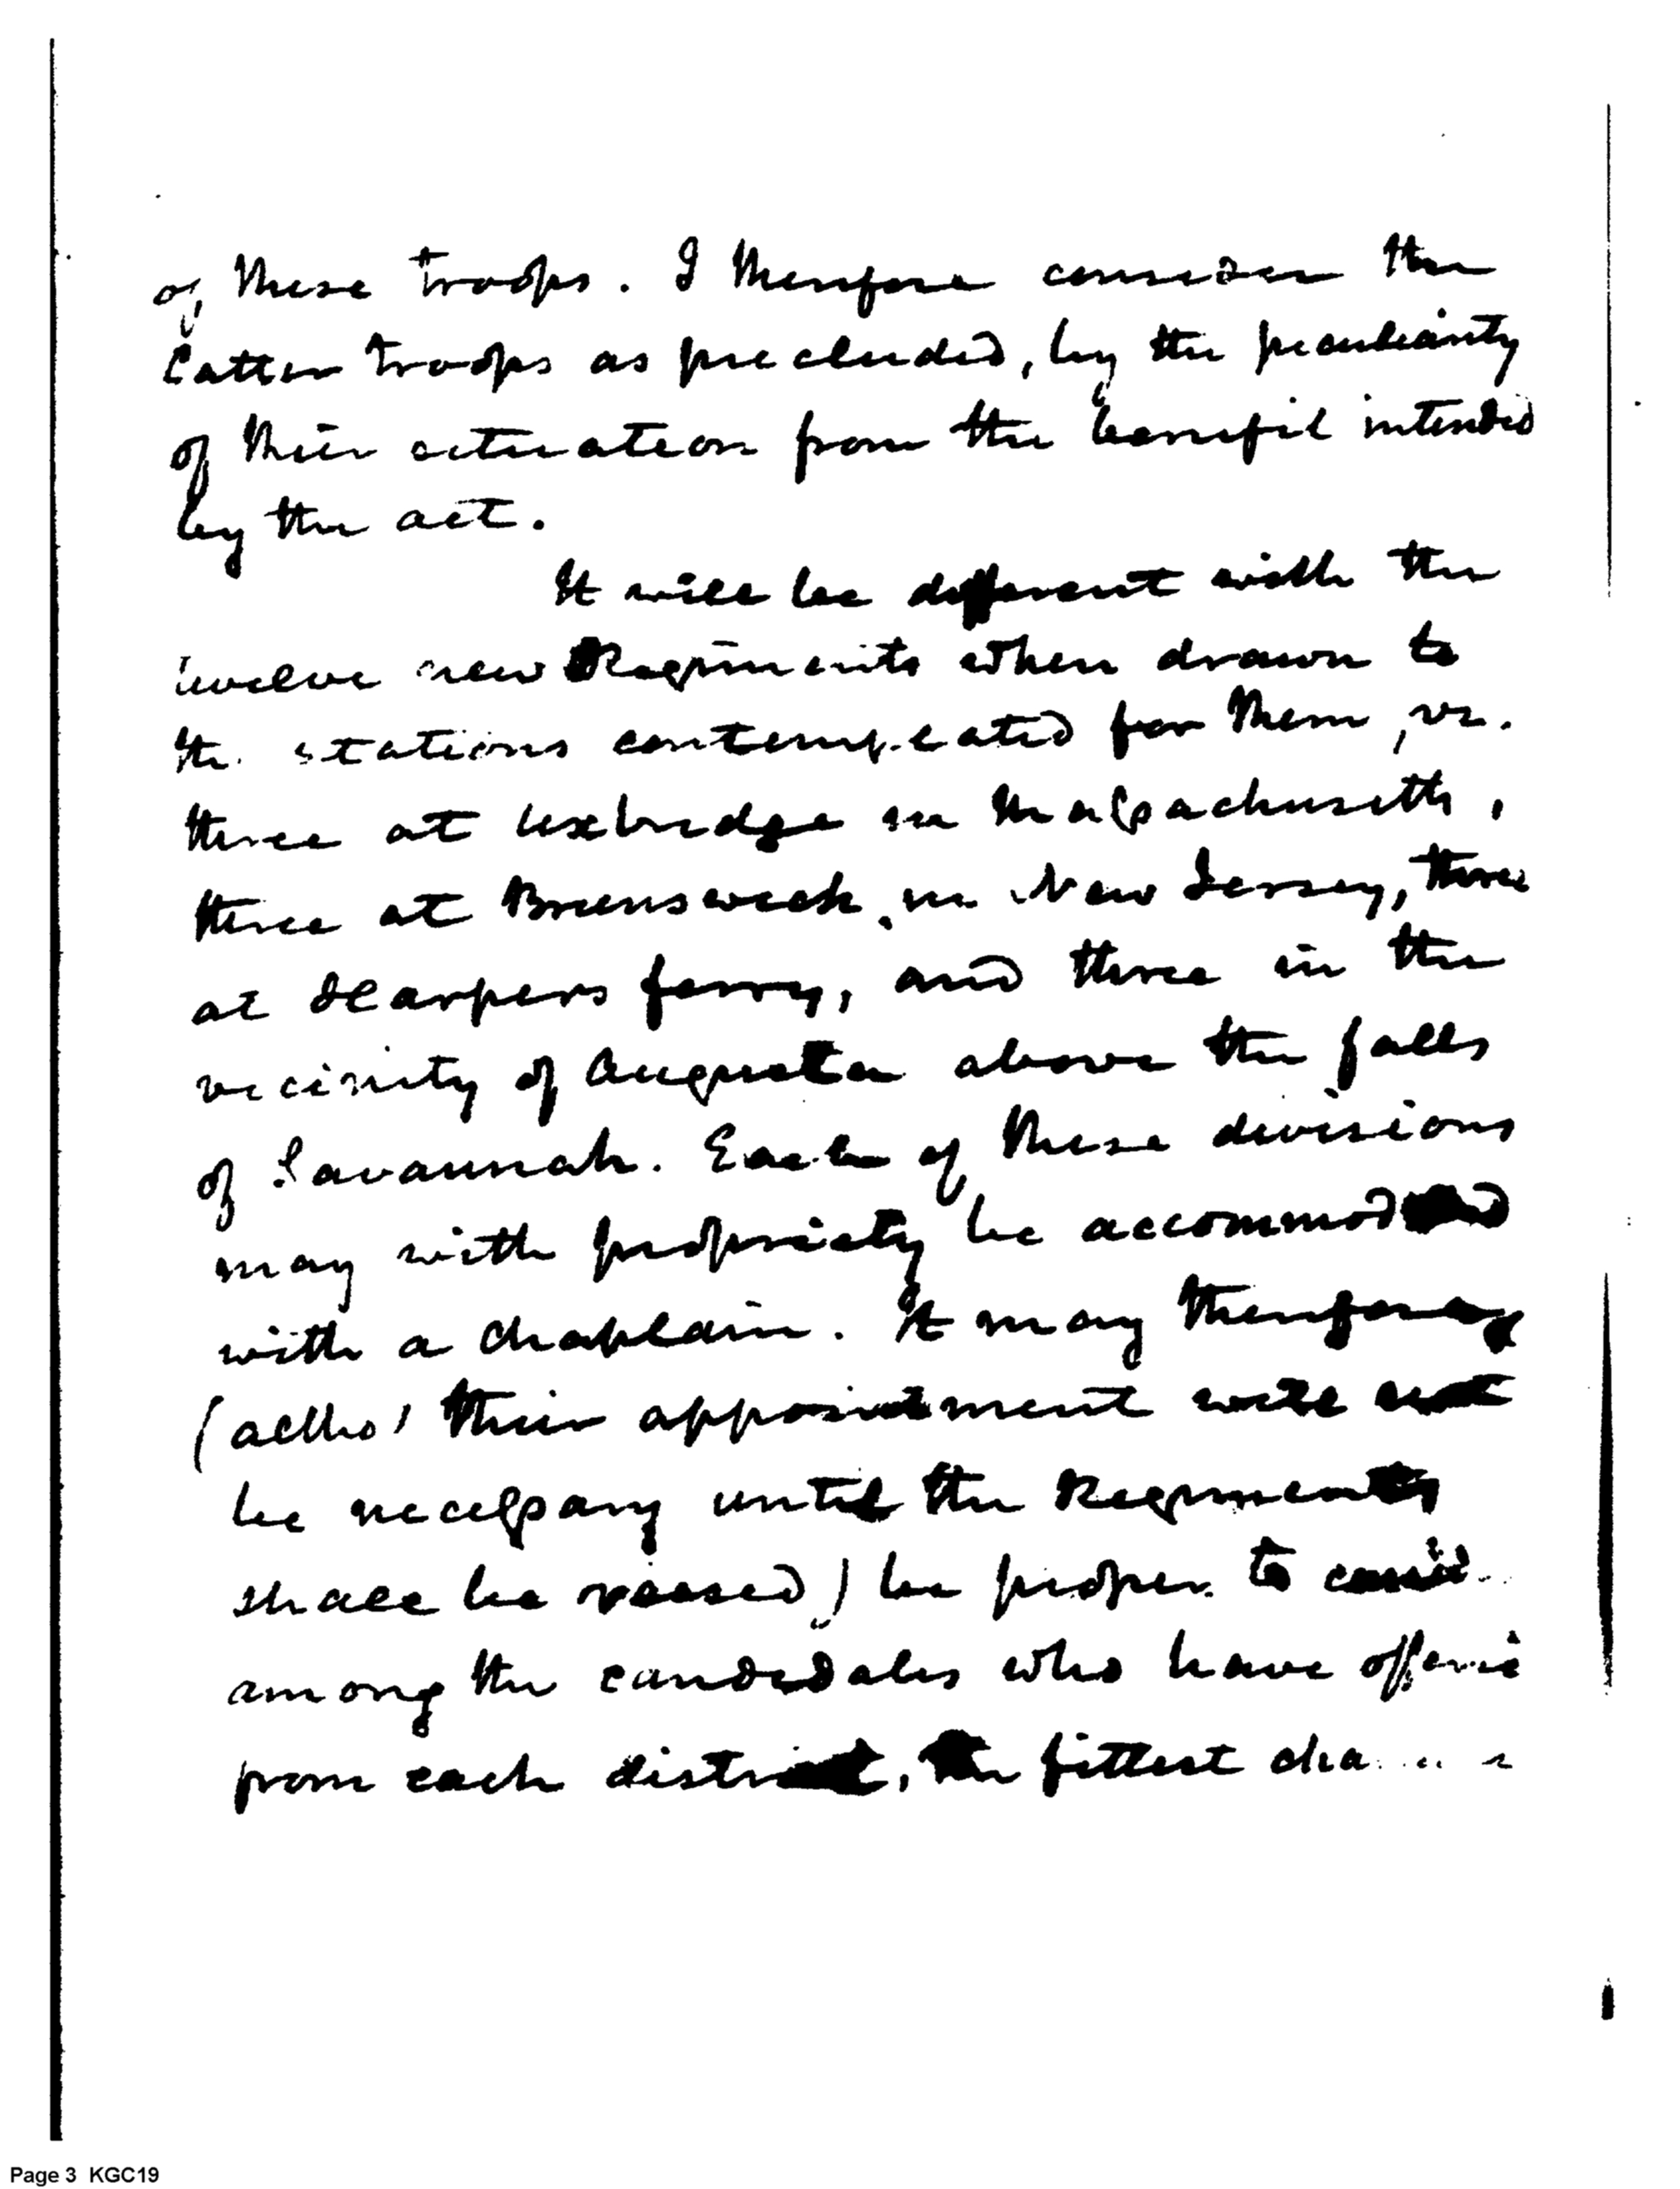 of these troops. I therefore consider the
latter troops as precluded, by the peculiarity
of their situation from the benefit intended
by the act.
It will be different with the
twelve new Regiments when drawn to
the stations contemplated for them, vz.
three at Uxbridge in Massachusetts,
three at Brunswick in New Jersey, three
at Harpers ferry, and three in the
vicinity of Augusta above the falls
of Savannah. Each of these divisions
may with propriety be accommodated
with a chaplain. It may therefore
(altho' their appointment will not
be necessary until the Regiments
shall be raised) be proper to
among the candidates who have offered
from each district, the fittest
Page 3 KGC19